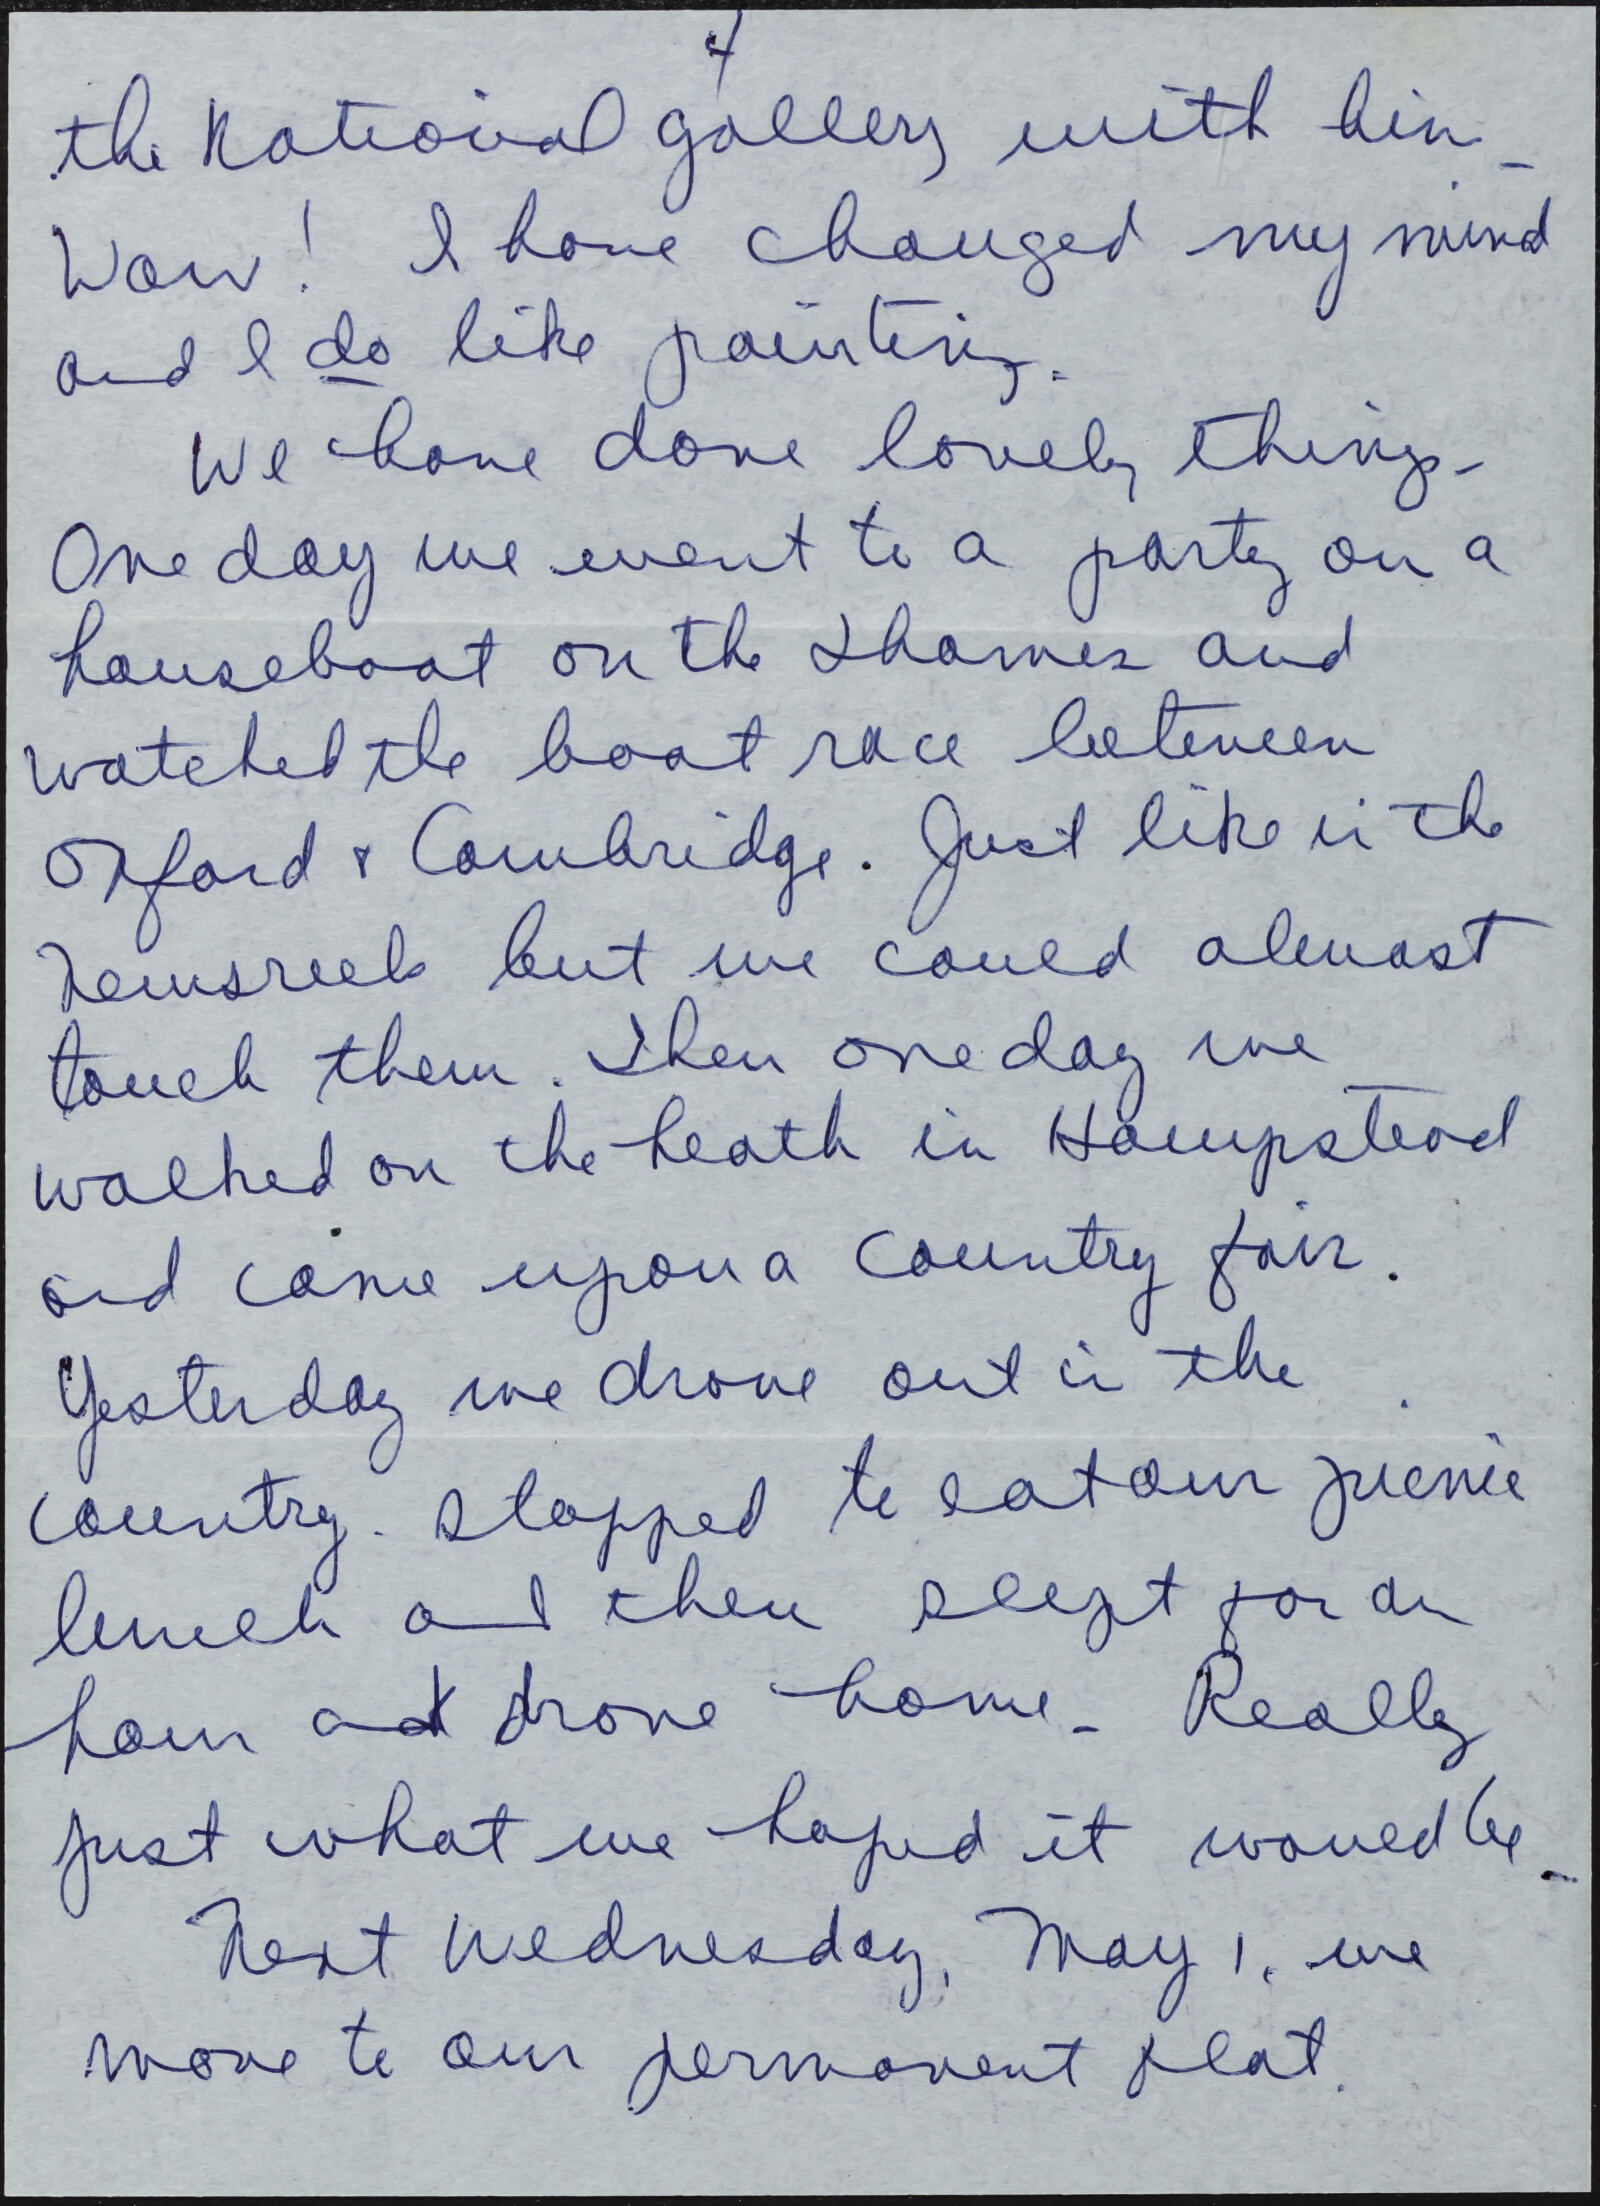 4
the National Gallery with him_
Wow! I have changed my mind
and I do like painting.
We have done lovely things-
One day we went to a party on a
houseboat on the Thames and
watched the boat race between
Oxford & Cambridge. Just like in the
Newsreels but we could almost
touch them. Then one day we
walked on the heath in Hampstead
and came upon a country fair.
Yesterday we drove out in the
country. Stopped to eat our picnic
lunch and then slept for an
hour and drove home_ Really
just what we hoped it would be_
Next Wednesday, May 1, we
move to our permanent flat.